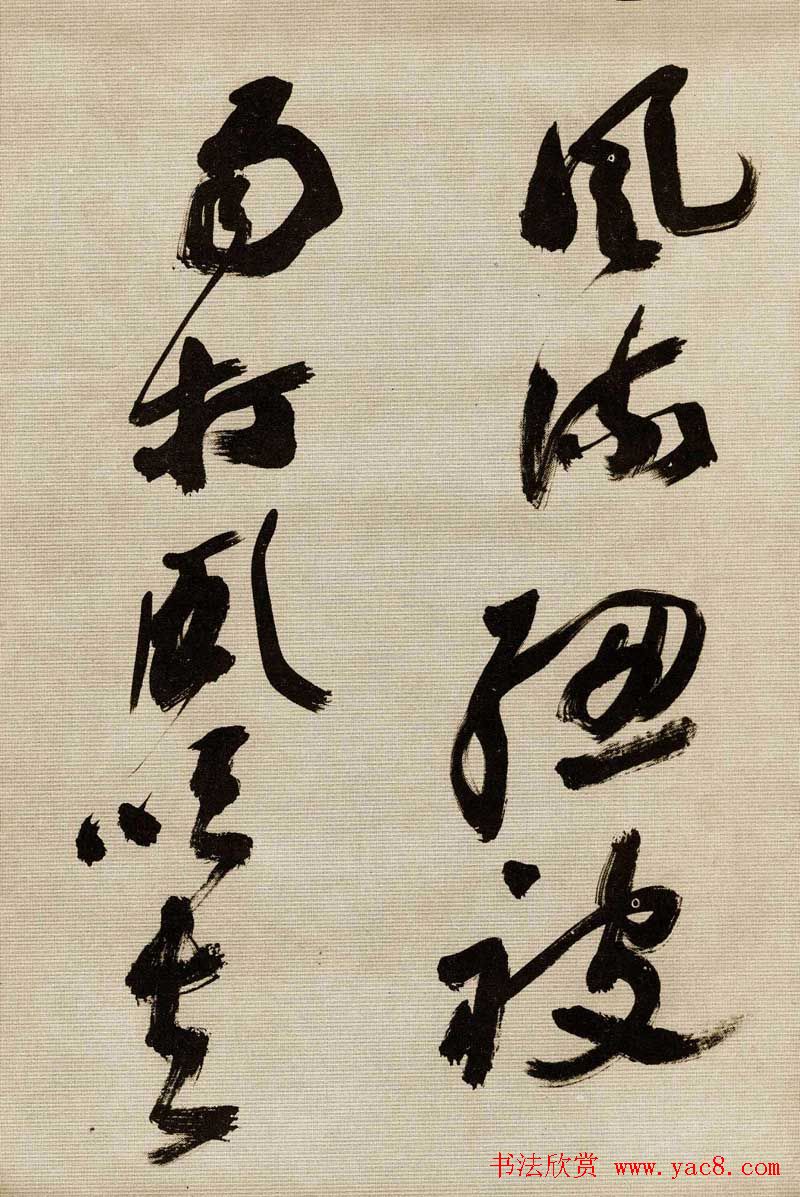 風流總被
雨打風吹去
书法欣赏 www.yac8.com